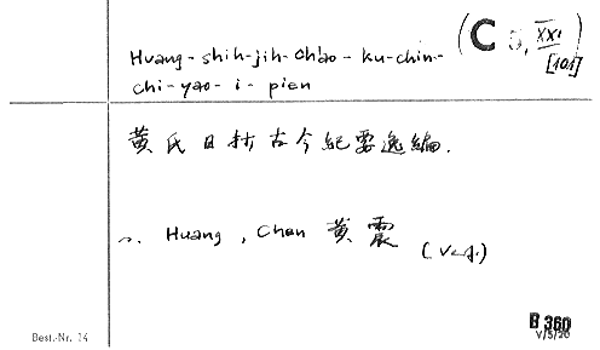 (C 5, XXI
[101])
Huang-shih-jih-ch'ao-ku-chin-
chi-yao-i-pien
黄氏日抄古今紀要逸編.
Huang, Chen 黄震 (Verf.)
B 360
V/5/20
Best.-Nr. 14